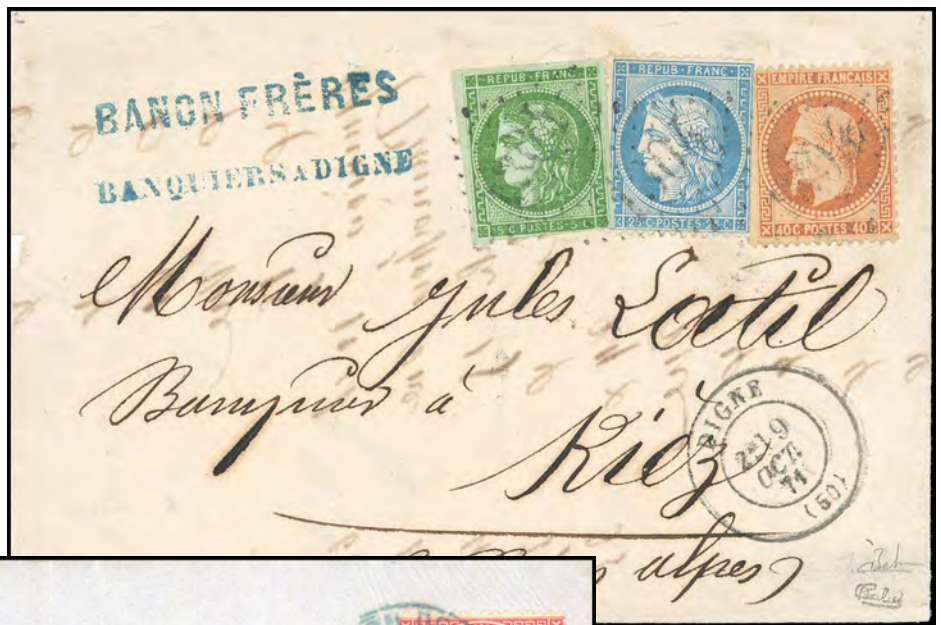 BANON FRÈRES
BANQUIERS A DIGNE
REPUB·FRANC·
5·C·POSTES·5·C
REPUB·FRANC·
25·C·POSTES·25·C
EMPIRE FRANÇAIS
40C·POSTES·40C
Monsieur Jules
Banquier à
Riez
alpes
DIGNE
2E
9
OCT.
71
(50)